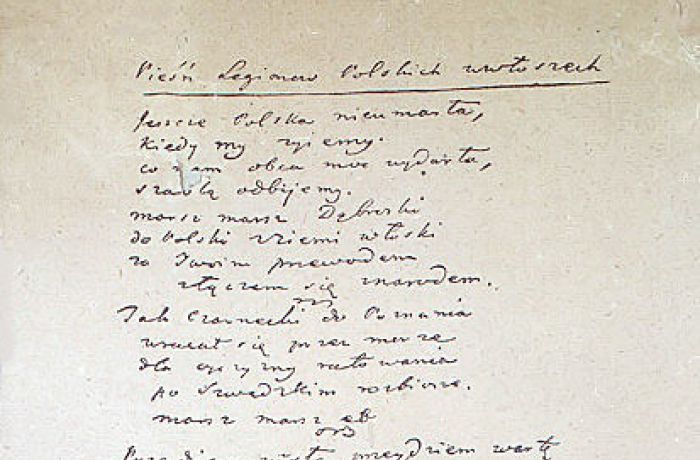 Pieśń Legionow Polskich wewłoszech
Jeszcze Polska nieumarła,
kiedy my żyiemy.
co nam obca moc wydarła,
szablą odbiiemy.
marsz marsz Dąbroski
do Polski zziemi włoski
za Twoim przewodem
złączem się znarodem.
Jak Czarnecki do Poznania
wracał się przez morze
dla oyczyzny ratowania
po Szwedzkim rozbiorze.
marsz marsz etc
przeydziem wartę